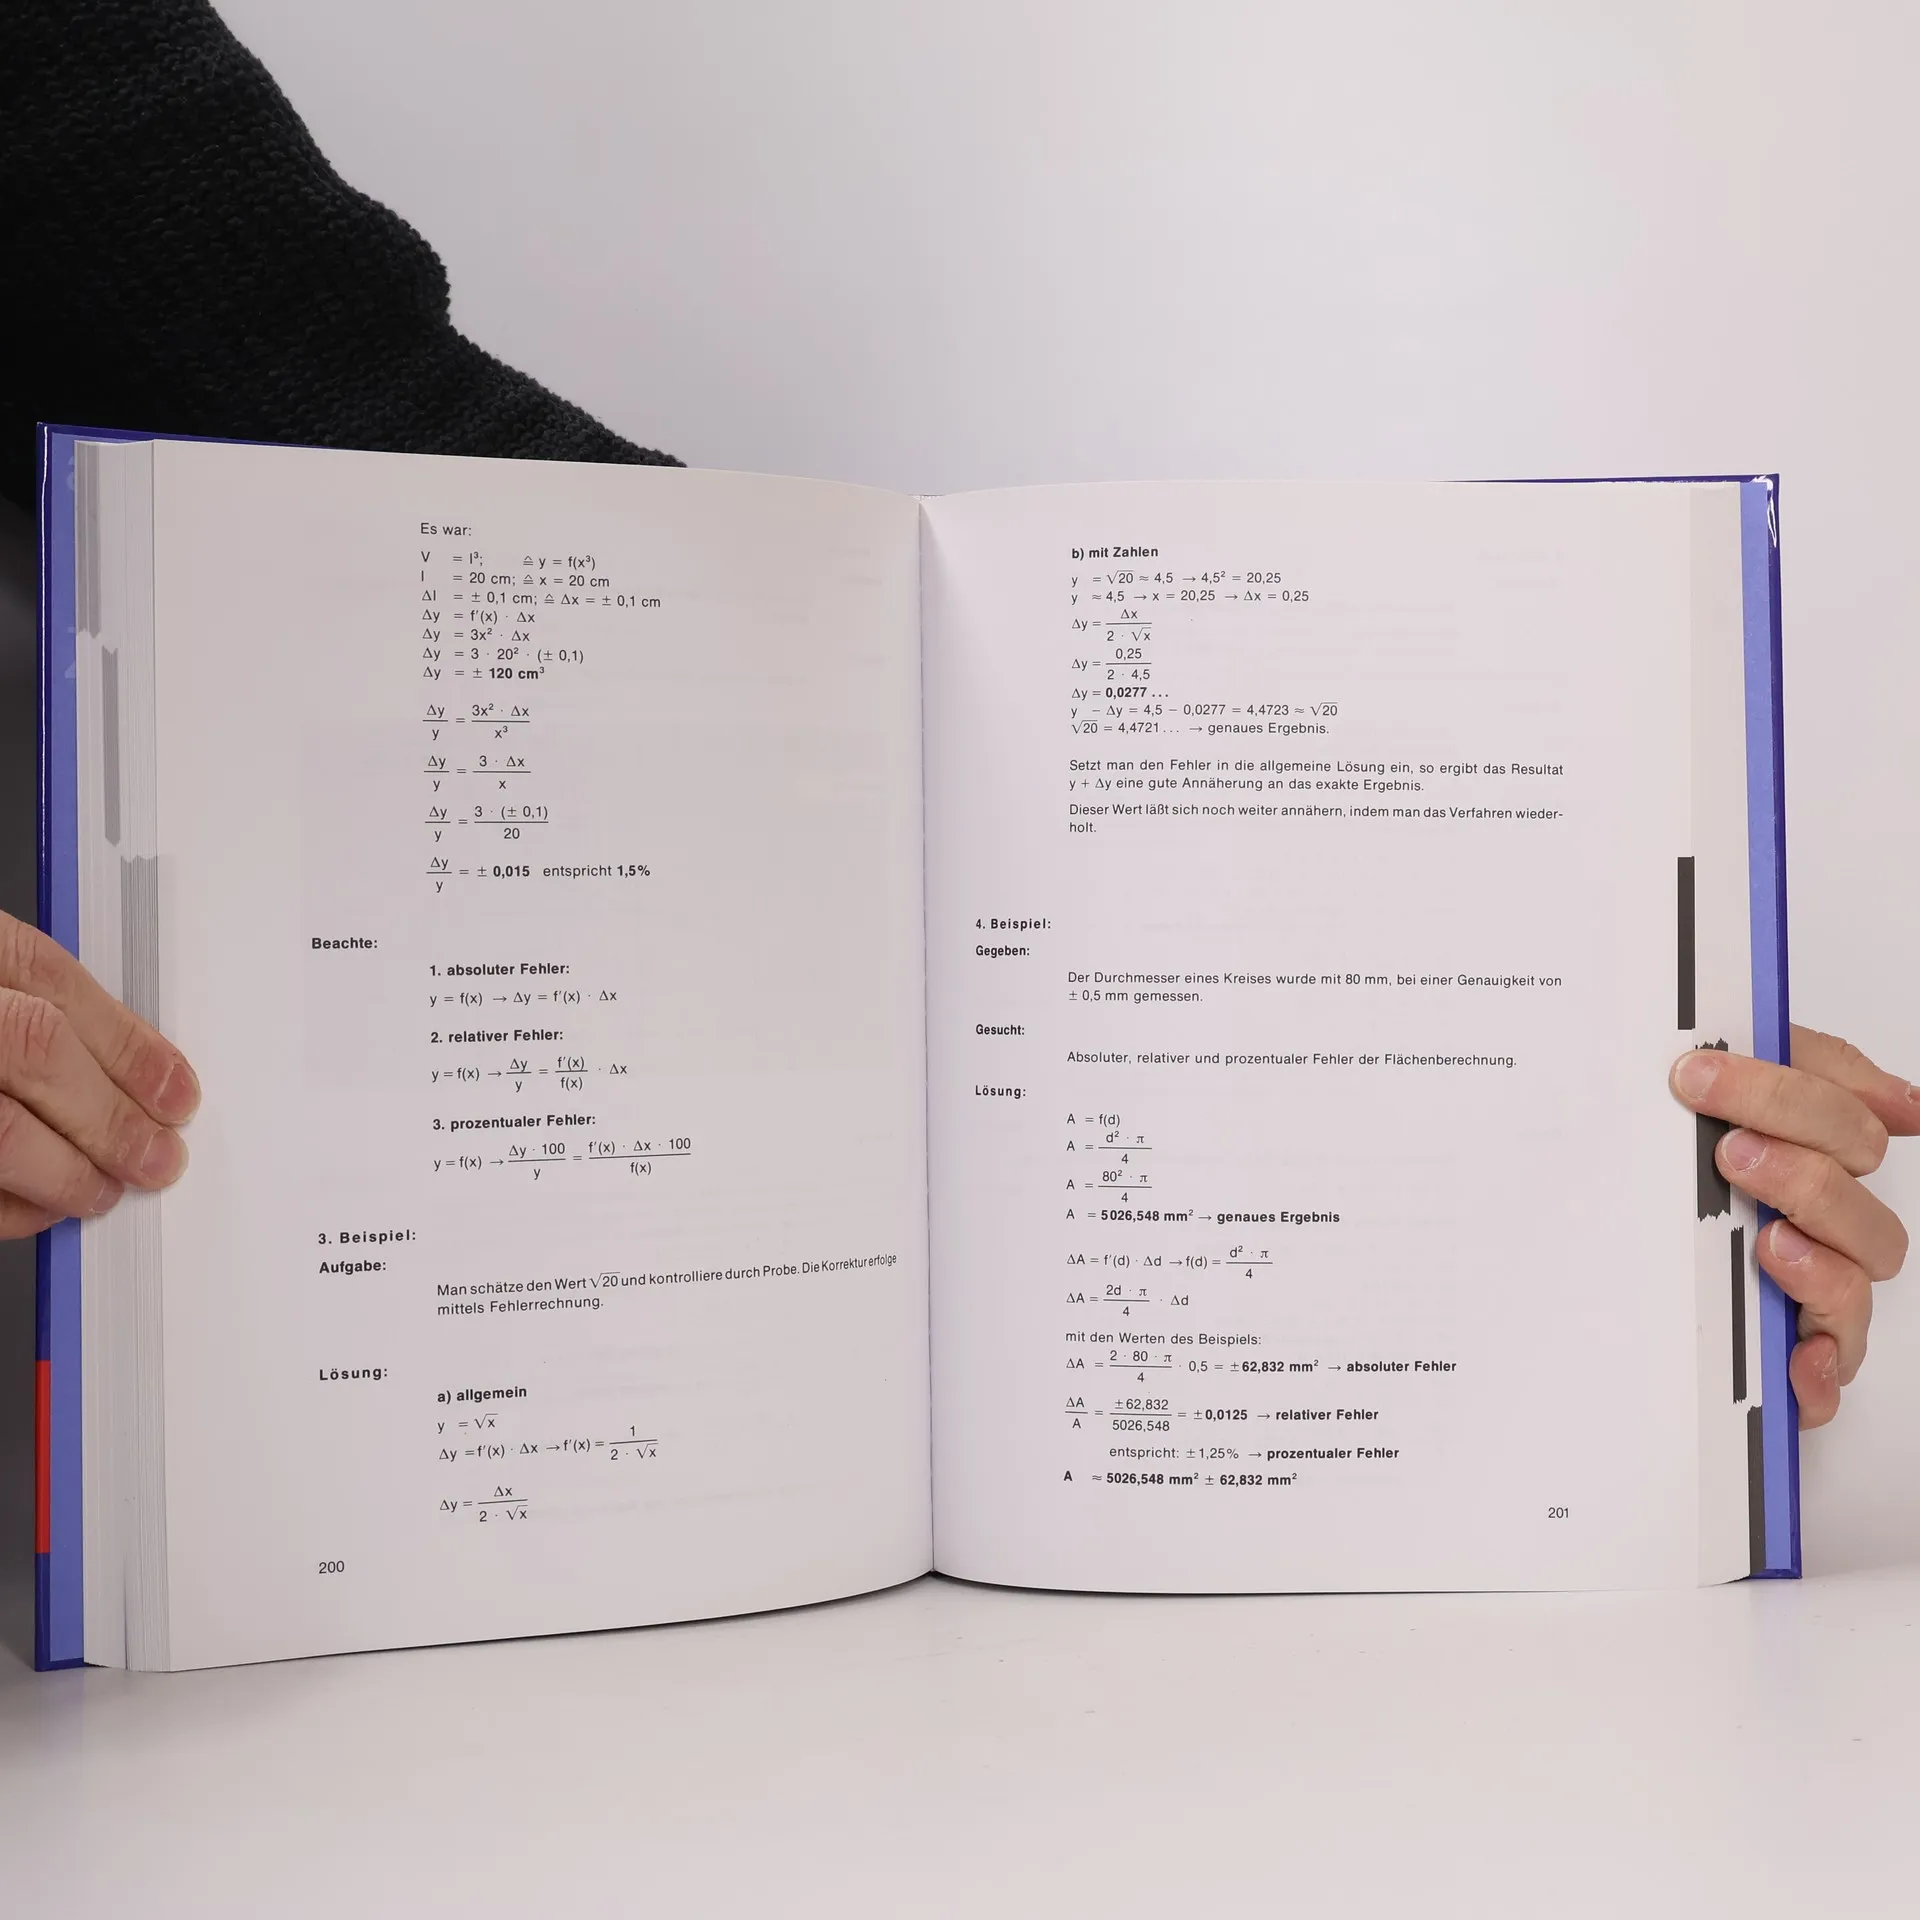 Es war:
V = l³; ≙ y = f(x³)
l = 20 cm; ≙ x = 20 cm
Δl = ± 0,1 cm; ≙ Δx = ± 0,1 cm
Δy = f′(x) · Δx
Δy = 3x² · Δx
Δy = 3 · 20² · (± 0,1)
Δy = ± 120 cm³
Δy/y = 3x² · Δx/x³
Δy/y = 3 · Δx/x
Δy/y = 3 · (± 0,1)/20
Δy/y = ± 0,015 entspricht 1,5%
Beachte:
1. absoluter Fehler:
y = f(x) → Δy = f′(x) · Δx
2. relativer Fehler:
y = f(x) → Δy/y = f′(x)/f(x) · Δx
3. prozentualer Fehler:
y = f(x) → Δy · 100/y = f′(x) · Δx · 100/f(x)
3. Beispiel:
Aufgabe:
Man schätze den Wert √20 und kontrolliere durch Probe. Die Korrektur erfolge
mittels Fehlerrechnung.
Lösung:
a) allgemein
y = √x
Δy = f′(x) · Δx → f′(x) = 1/2 · √x
Δy = Δx/2 · √x
200
b) mit Zahlen
y = √20 ≈ 4,5 → 4,5² = 20,25
y ≈ 4,5 → x = 20,25 → Δx = 0,25
Δy = Δx/2 · √x
Δy = 0,25/2 · 4,5
Δy = 0,0277 ...
y − Δy = 4,5 − 0,0277 = 4,4723 ≈ √20
√20 = 4,4721 ... → genaues Ergebnis.
Setzt man den Fehler in die allgemeine Lösung ein, so ergibt das Resultat
y + Δy eine gute Annäherung an das exakte Ergebnis.
Dieser Wert läßt sich noch weiter annähern, indem man das Verfahren wieder-
holt.
4. Beispiel:
Gegeben:
Der Durchmesser eines Kreises wurde mit 80 mm, bei einer Genauigkeit von
± 0,5 mm gemessen.
Gesucht:
Absoluter, relativer und prozentualer Fehler der Flächenberechnung.
Lösung:
A = f(d)
A = d² · π/4
A = 80² · π/4
A = 5026,548 mm² → genaues Ergebnis
ΔA = f′(d) · Δd → f(d) = d² · π/4
ΔA = 2d · π/4 · Δd
mit den Werten des Beispiels:
ΔA = 2 · 80 · π/4 · 0,5 = ±62,832 mm² → absoluter Fehler
ΔA/A = ±62,832/5026,548 = ±0,0125 → relativer Fehler
entspricht: ±1,25% → prozentualer Fehler
A ≈ 5026,548 mm² ± 62,832 mm²
201